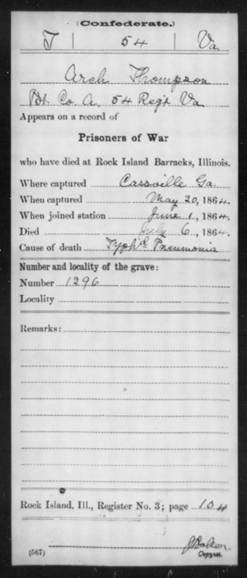 (Confederate.)
T | 54 | Va
Arch Thompson
Pvt Co. A, 54 Reg't Va
Appears on a record of
Prisoners of War
who have died at Rock Island Barracks, Illinois.
Where captured Cassville Ga.
When captured May 20, 1864.
When joined station June 1, 1864.
Died July 6, 1864.
Cause of death Typhd Pneumonia
Number and locality of the grave:
Number 1296
Locality
Remarks:
Rock Island, Ill., Register No. 3; page 104
(567)
Copyist.